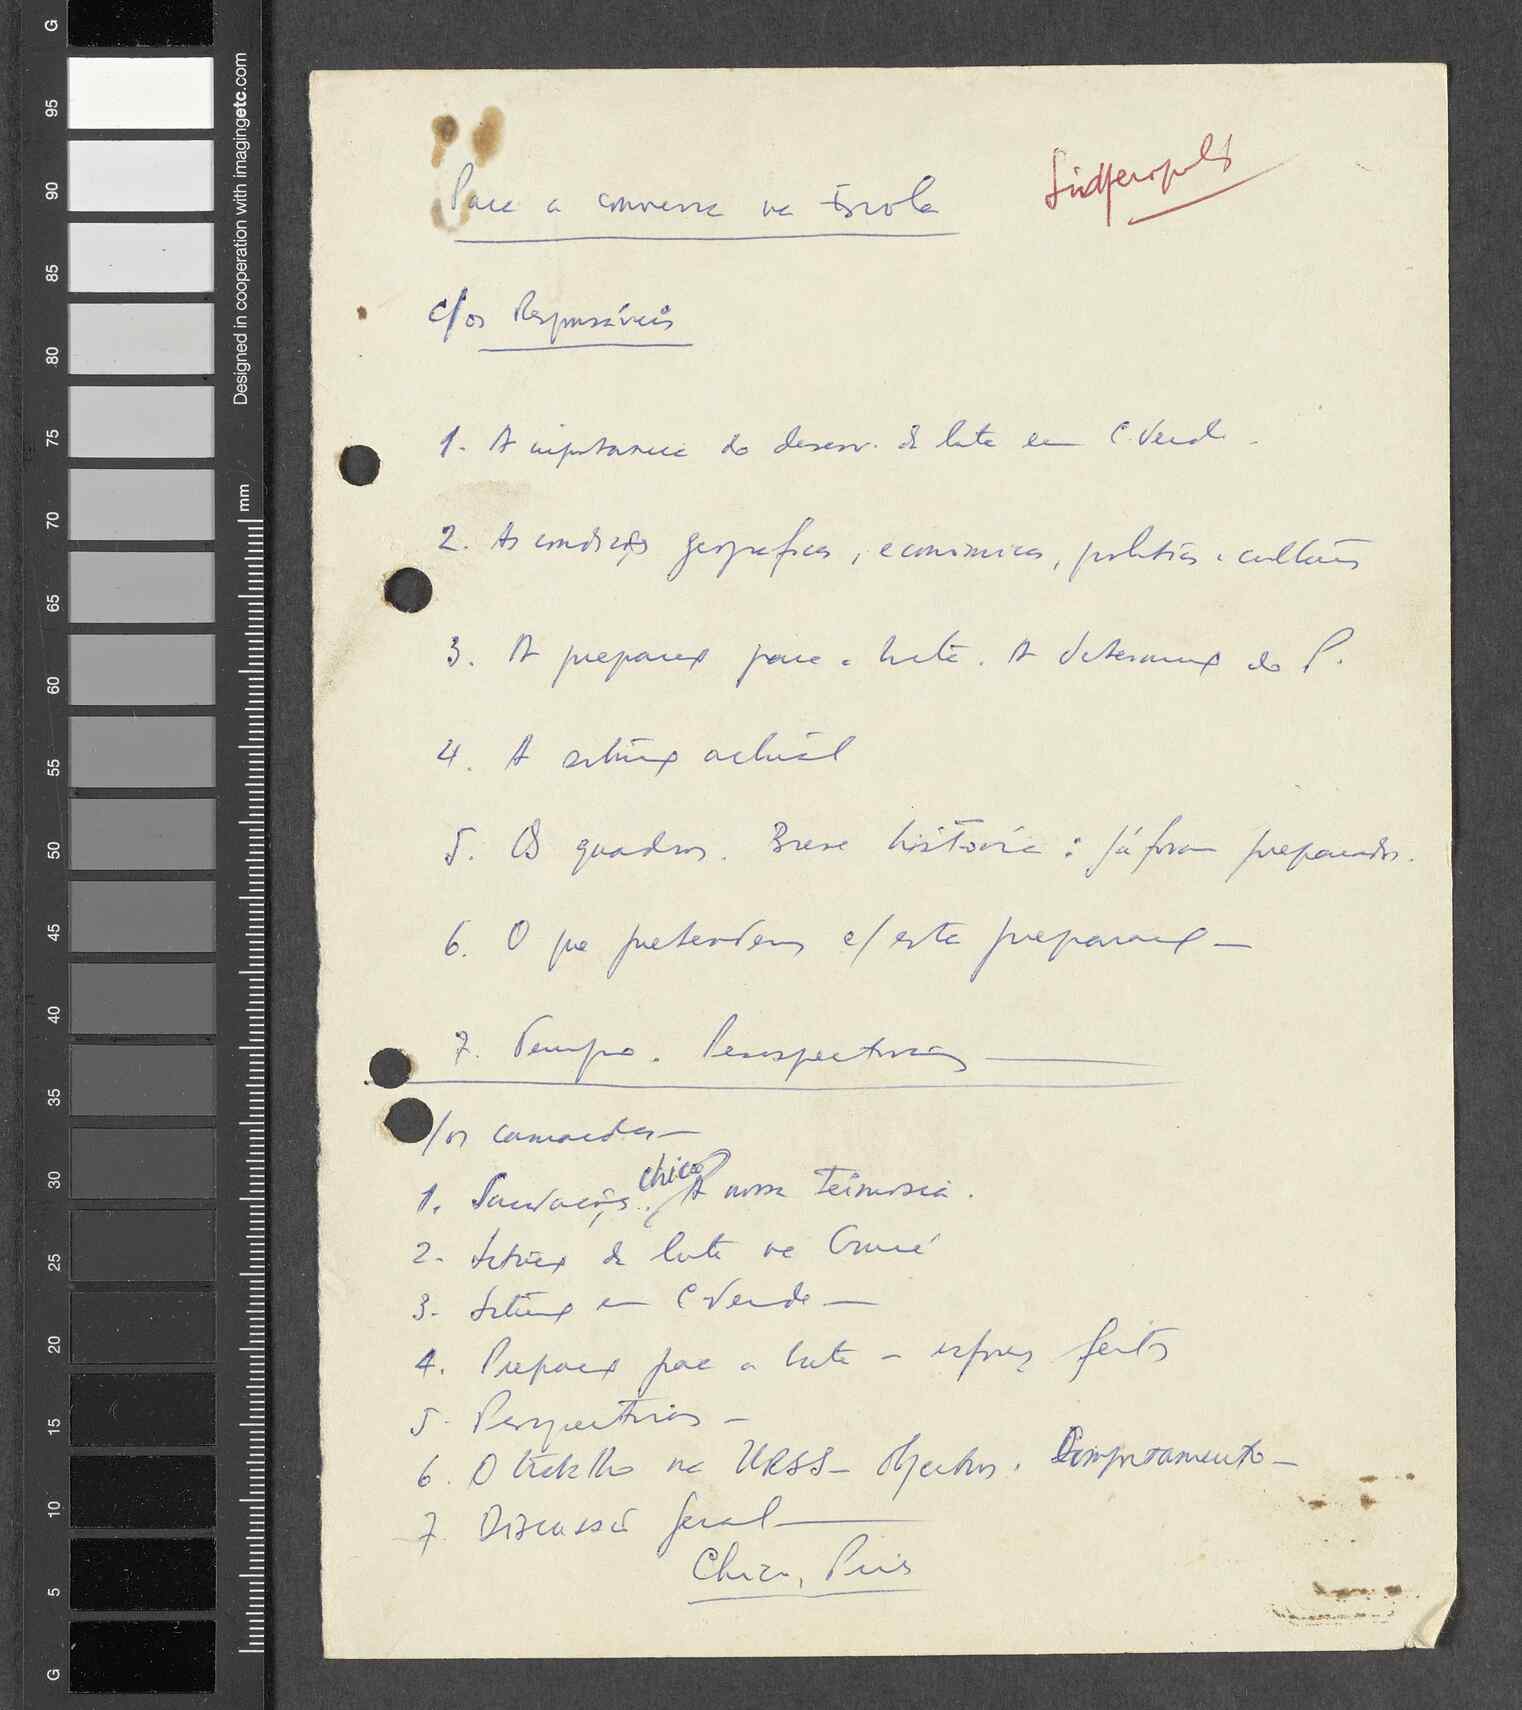 Para a conversa na Escola
Sindferopols
c/os Responsáveis
1. A importancia do desenv. da luta em C. Verde.
2. As condições geograficas, economicas, politicas e culturais
3. A preparaç para a luta. A determinaç do P.
4. A situaç actual
5. Os quadros. Breve história: já foram preparados.
6. O que pretendemos c/ esta preparaç —
7. Tempo. Perspectivas
/os camaradas —
chico
1. Saudações. A nossa teimosia.
2. Situaç da luta na Guiné
3. Situaç em C. Verde —
4. Preparaç para a luta — esforços feitos
5. Perspectivas —
6. O trabalho na URSS — objectivos. Comportamento —
7. Discussão geral
Chico, Pires
G
95
90
85
80
75
70
65
60
55
50
45
40
35
30
25
20
15
10
5
G
mm
Designed in cooperation with imagingetc.com